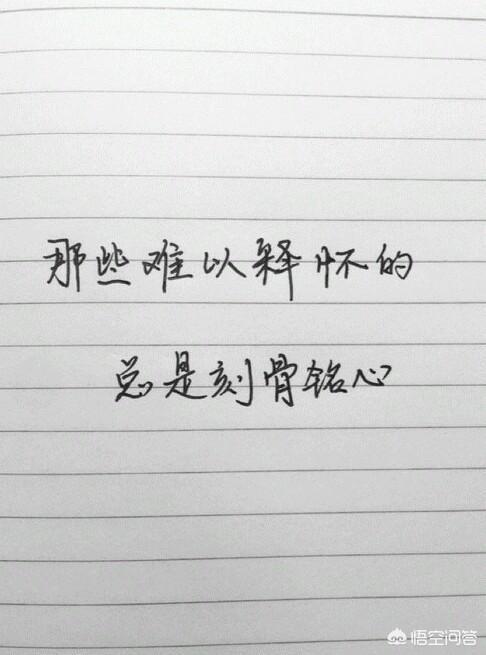 那些难以释怀的
总是刻骨铭心
悟空问答